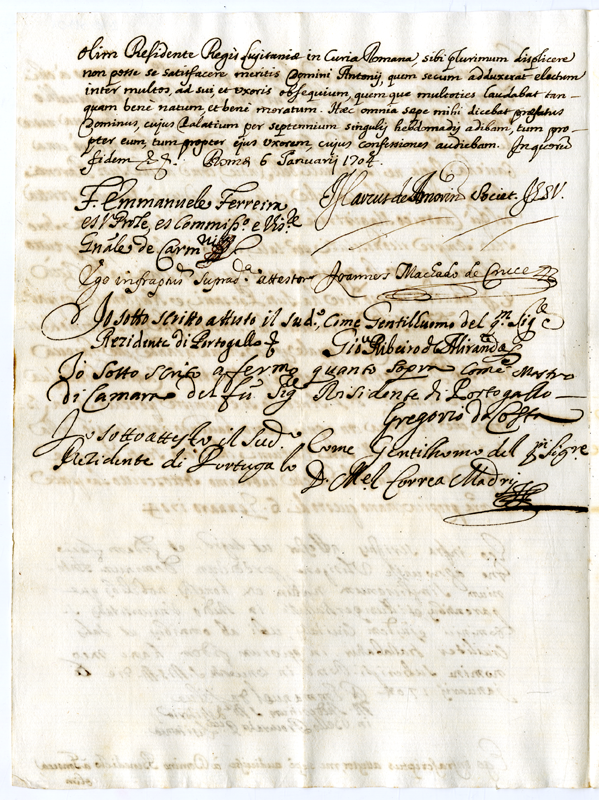 olim Residente Regis Lusitaniæ in Curia Romana, sibi plurimum displicere
non posse se satisfacere meritis Domini Antonij, quem secum adduxerat electum
inter multos, ad sui et uxoris obsequium, quemque multoties laudabat tan-
quam bene natum, et bene moratum. Hæc omnia sæpe mihi dicebat præfatus
Dominus, cujus Palatium per septennium singulis hebdomadis adibam, tum pro-
pter eum, tum propter ejus uxorem, cujus confessiones audiebam. In quorū
fidem &. Romæ 6 Januarij 1704.
F. Emmanuele Ferreira
es Commiss.o e Vis.re
Gn̄ales de Carm
Marcus de Amorin Societ. JESV.
Ego infraptus suprad.a attestor Joannes Machado de Cruce
Jo sotto scritto attesto il sud.o, Come Gentilhuomo del q.m Sig.e
Rezidente di Portogallo
Gio. Ribeiro de Miranda
Jo sotto scrito affermo quanto sopra come Mastro
di Camara del fù Sig.e Residente di Portogallo
Gregorio da Costa
Jo sotto attesto il sud.o Come Gentilhomo del q.m Sig.re
Rezidente di Portugalo
D. Mel Correa Madrj